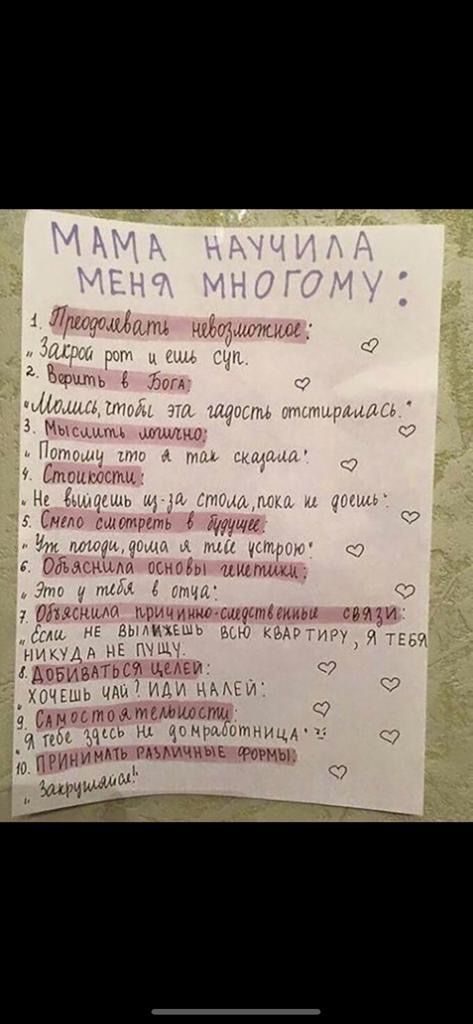 МАМА НАУЧИЛА
МЕНЯ МНОГОМУ:
1. Преодолевать невозможное:
„Закрой рот и ешь суп.
2. Верить в Бога:
„Молись, чтобы эта гадость отстиралась."
3. Мыслить логично:
„Потому что я так сказала".
4. Стойкости:
„Не выйдешь из-за стола, пока не доешь".
5. Смело смотреть в будущее:
„Уж погоди, дома я тебе устрою"
6. Объяснила основы генетики:
„Это у тебя в отца".
7. Объяснила причинно-следственные связи:
„ЕСЛИ НЕ ВЫЛИЖЕШЬ ВСЮ КВАРТИРУ, Я ТЕБЯ
НИКУДА НЕ ПУЩУ.
8. ДОБИВАТЬСЯ ЦЕЛЕЙ:
„ХОЧЕШЬ ЧАЙ? ИДИ НАЛЕЙ".
9. Самостоятельности:
"Я тебе здесь не домработница"
10. ПРИНИМАТЬ РАЗЛИЧНЫЕ ФОРМЫ:
„Закругляйся!"